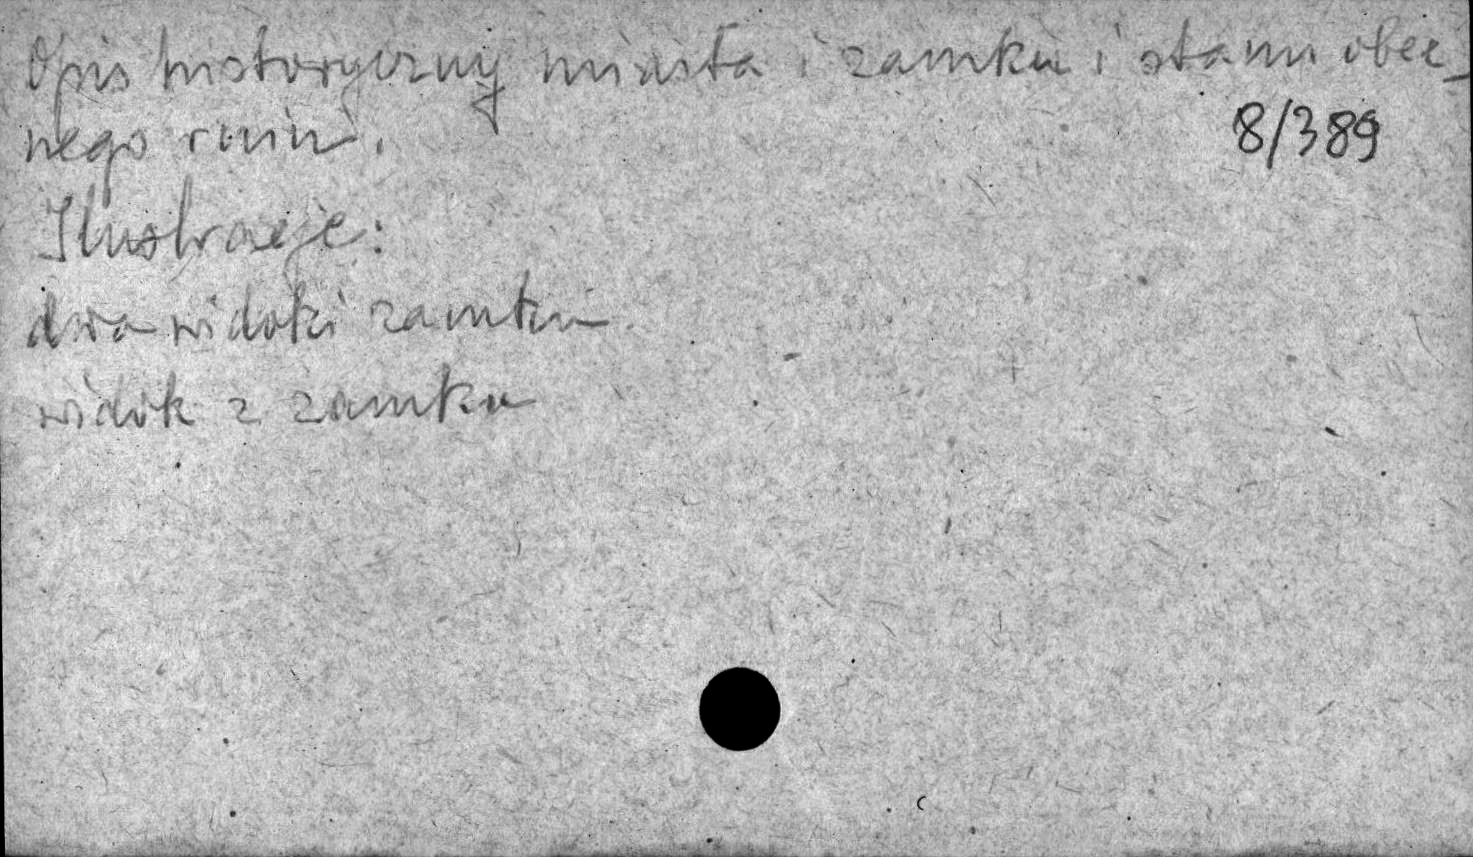 Opis historyczny miasta i zamku i stanu obec-
nego ruin.
8/389
Ilustracje:
dwa widoki zamku
widok z zamku